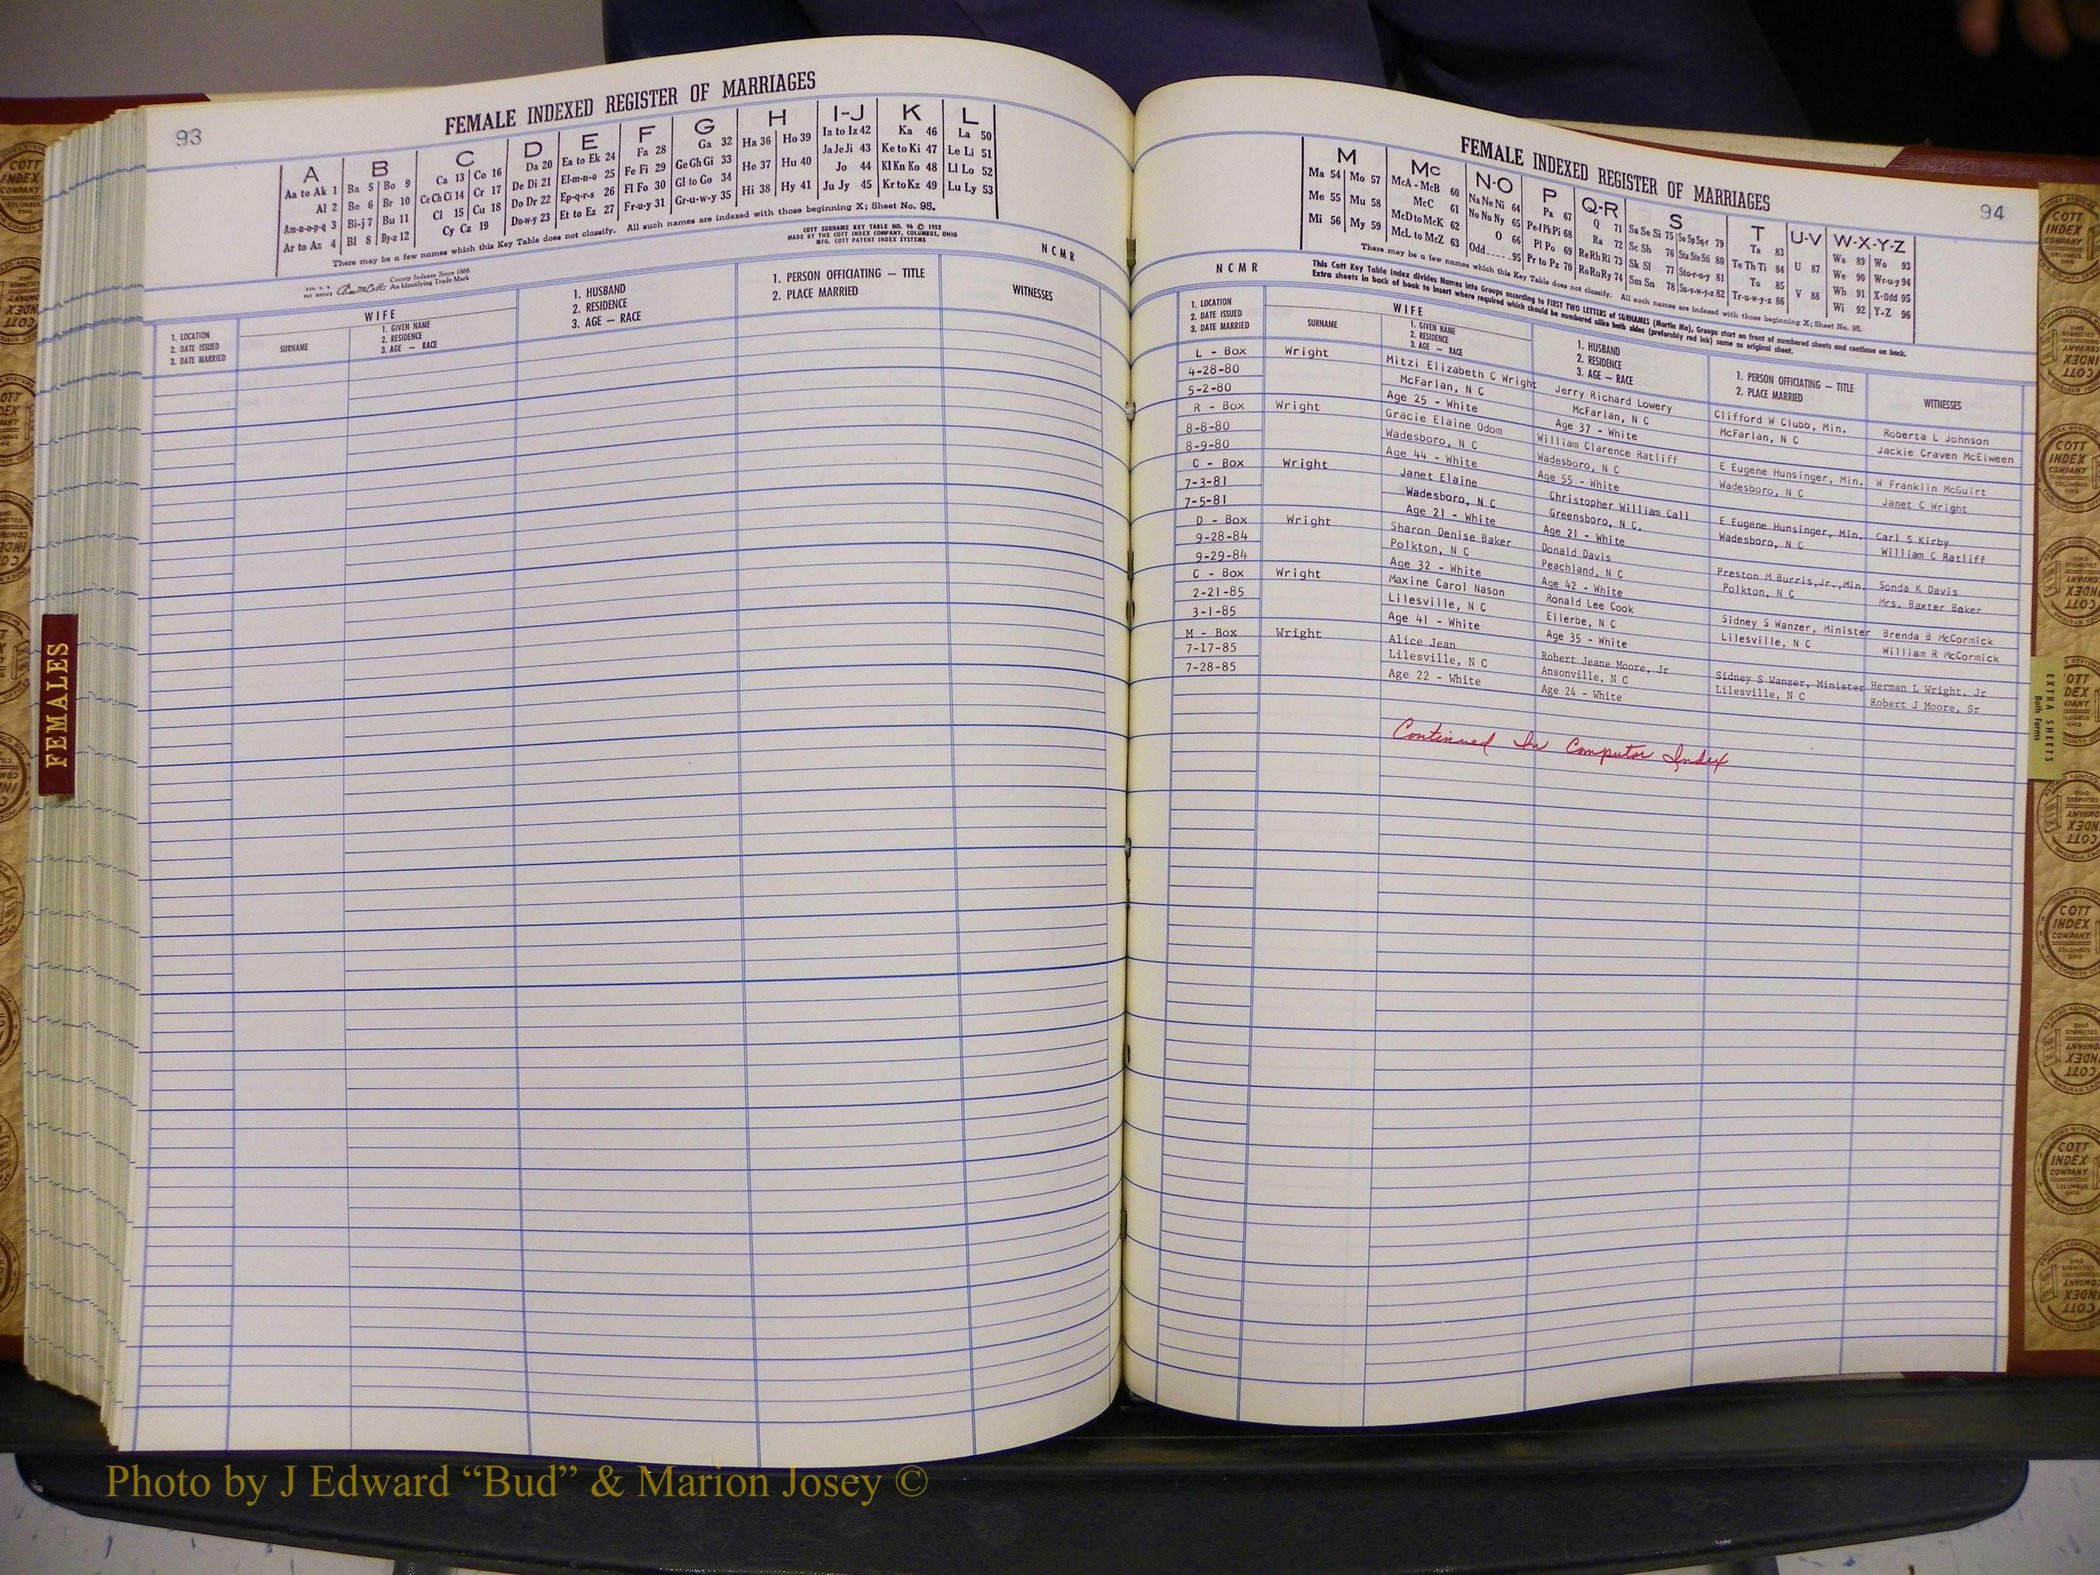 93
FEMALE INDEXED REGISTER OF MARRIAGES
A B C D E F G H I-J K L
Aa to Ak 1 Ba 5 Bo 9 Ca 13 Co 16 Da 20 Ea to Ek 24 Fa 28 Ga 32 Ha 36 Ho 39 Ia to Iz 42 Ka 46 La 50
Al 2 Be 6 Br 10 Ce Ch Ci 14 Cr 17 De Di 21 El-m-n-o 25 Fe Fi 29 Ge Gh Gi 33 He 37 Hu 40 Ja Je Ji 43 Ke to Ki 47 Le Li 51
Am-n-o-p-q 3 Bi-j 7 Bu 11 Cl 15 Cu 18 Do Dr 22 Ep-q-r-s 26 Fl Fo 30 Gl to Go 34 Hi 38 Hy 41 Jo 44 Kl Kn Ko 48 Ll Lo 52
Ar to Az 4 Bl 8 By-z 12 Cy Cz 19 Du-w-y 23 Et to Ez 27 Fr-u-y 31 Gr-u-w-y 35 Ju Jy 45 Kr to Kz 49 Lu Ly 53
There may be a few names which this Key Table does not classify. All such names are indexed with those beginning X; Sheet No. 95.
COTT SURNAME KEY TABLE NO. 96 © 1952
MADE BY THE COTT INDEX COMPANY, COLUMBUS, OHIO
MFG. COTT PATENT INDEX SYSTEMS
NCMR
County Indexes Since 1888
An Identifying Trade Mark
1. LOCATION
2. DATE ISSUED
3. DATE MARRIED
WIFE
SURNAME
1. GIVEN NAME
2. RESIDENCE
3. AGE — RACE
1. HUSBAND
2. RESIDENCE
3. AGE — RACE
1. PERSON OFFICIATING — TITLE
2. PLACE MARRIED
WITNESSES
FEMALES
FEMALE INDEXED REGISTER OF MARRIAGES
94
M Mc N-O P Q-R S T U-V W-X-Y-Z
Ma 54 Mo 57 McA - McB 60 Na Ne Ni 64 Pa 67 Q 71 Sa Se Si 75 So Sp Sq-r 79 Ta 83 U 87 Wa 89 Wo 93
Me 55 Mu 58 McC 61 No Nu Ny 65 Pe-f Ph Pi 68 Ra 72 Sc Sh 76 Sta Ste Sti 80 Te Th Ti 84 V 88 We 90 Wr-u-y 94
Mi 56 My 59 McD to McK 62 O 66 Pl Po 69 Re Rh Ri 73 Sk Sl 77 Sto-r-u-y 81 To 85 Wh 91 X-Odd 95
McL to McZ 63 Odd 95 Pr to Pz 70 Ro Ru Ry 74 Sm Sn 78 Su-v-w-y-z 82 Tr-u-w-y-z 86 Wi 92 Y-Z 96
There may be a few names which this Key Table does not classify. All such names are indexed with those beginning X; Sheet No. 95.
NCMR
This Cott Key Table Index divides Names into Groups according to FIRST TWO LETTERS of SURNAMES (Martin Ma), Groups start on front of numbered sheets and continue on back.
Extra sheets in back of book to insert where required which should be numbered alike both sides (preferably red ink) same as original sheet.
1. LOCATION
2. DATE ISSUED
3. DATE MARRIED
WIFE
SURNAME
1. GIVEN NAME
2. RESIDENCE
3. AGE — RACE
1. HUSBAND
2. RESIDENCE
3. AGE — RACE
1. PERSON OFFICIATING — TITLE
2. PLACE MARRIED
WITNESSES
L - Box Wright Mitzi Elizabeth C Wright Jerry Richard Lowery Clifford W Clubb, Min. Roberta L Johnson
4-28-80 McFarlan, N C McFarlan, N C McFarlan, N C Jackie Craven McElween
5-2-80 Age 25 - White Age 37 - White
R - Box Wright Gracie Elaine Odom William Clarence Ratliff E Eugene Hunsinger, Min. W Franklin McGuirt
8-8-80 Wadesboro, N C Wadesboro, N C Wadesboro, N C Janet C Wright
8-9-80 Age 44 - White Age 55 - White
C - Box Wright Janet Elaine Christopher William Call E Eugene Hunsinger, Min. Carl S Kirby
7-3-81 Wadesboro, N C Greensboro, N C. Wadesboro, N C William C Ratliff
7-5-81 Age 21 - White Age 21 - White
D - Box Wright Sharon Denise Baker Donald Davis Preston M Burris,Jr.,Min. Sonda K Davis
9-28-84 Polkton, N C Peachland, N C Polkton, N C Mrs. Baxter Baker
9-29-84 Age 32 - White Age 42 - White
C - Box Wright Maxine Carol Nason Ronald Lee Cook Sidney S Wanzer, Minister Brenda B McCormick
2-21-85 Lilesville, N C Ellerbe, N C Lilesville, N C William R McCormick
3-1-85 Age 41 - White Age 35 - White
M - Box Wright Alice Jean Robert Jeane Moore, Jr Sidney S Wanzer, Minister Herman L Wright, Jr
7-17-85 Lilesville, N C Ansonville, N C Lilesville, N C Robert J Moore, Sr
7-28-85 Age 22 - White Age 24 - White
Continued In Computer Index
EXTRA SHEETS
Both Forms
COTT INDEX COMPANY COLUMBUS OHIO
Photo by J Edward “Bud” & Marion Josey ©